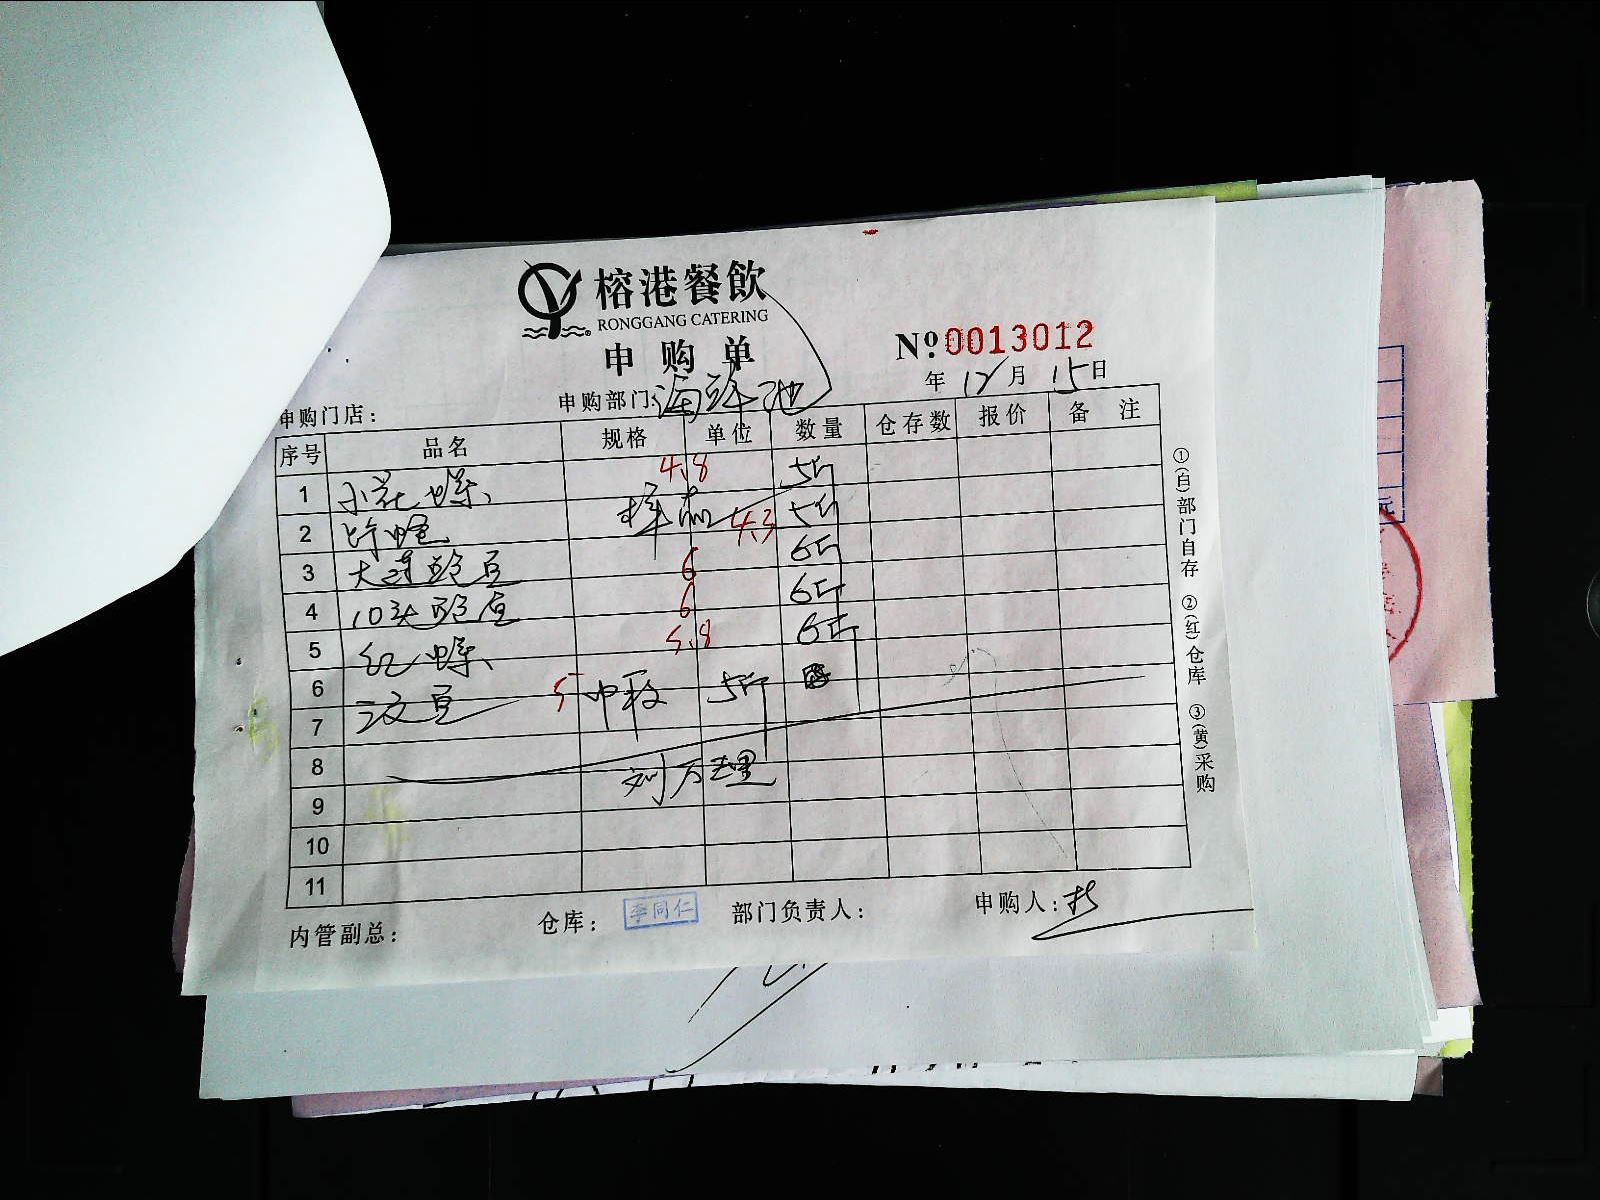 榕港餐飲
RONGGANG CATERING
申购单
Nº 0013012
年 12 月 15 日
申购门店: 申购部门: 海鲜池
序号 品名 规格 单位 数量 仓存数 报价 备注
1 小花螺 4.8 5斤
2 样品 4.3 5斤
3 大连鲍 6 6斤
4 10头鲍 6 6斤
5 红螺 5.8 6斤
6 5 5斤
7
8 刘万理
9
10
11
内管副总: 仓库: 李同仁 部门负责人: 申购人:
①(白)部门自存 ②(红)仓库 ③(黄)采购
元